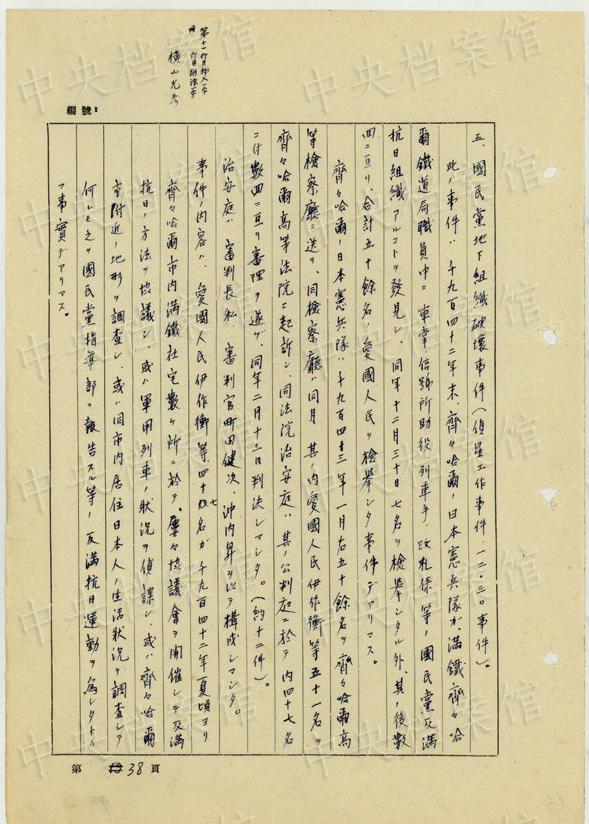 第十一行目挿入一字
編號：
横山光彦
五、國民黨地下組織破壊事件（偵星工作事件一二・三〇事件）。
此ノ事件ハ千九百四十二年末、齊々哈爾日本憲兵隊ガ、満鐵齊々哈
爾鐵道局職員中ニ車掌、信號所助役、列車手、改札係等ノ國民黨反満
抗日組織アルコトヲ發見シ、同年十二月三十日七名ヲ檢擧シタル外、其ノ後数
回ニ亘リ、合計五十餘名ノ愛國人民ヲ檢擧シタ事件デアリマス。
齊々哈爾ノ日本憲兵隊ハ千九百四十三年一月右五十餘名ヲ齊々哈爾高
等檢察廳ニ送リ、同檢察廳ハ同月其ノ内愛國人民伊作衡等五十一名ヲ
齊々哈爾高等法院ニ起訴シ、同法院治安庭ハ其ノ公判庭ニ於テ内四十七名
ニ付数回ニ亘リ審理ヲ遂ゲ、同年二月十三日判決シマシタ。（約十二件）。
治安庭ハ審判長私、審判官町田健次、沖内昇ヲ以テ構成シマシタ。
事件ノ内容ハ、愛國人民伊作衡等四十七名ガ千九百四十二年夏頃ヨリ
齊々哈爾市内満鐵社宅数ケ所ニ於テ、屢々協議會ヲ開催シテ反満
抗日ノ方法ヲ協議シ、或ハ軍用列車ノ状況ヲ偵諜シ、或ハ齊々哈爾
市附近ノ地形ヲ調査シ、或ハ同市内居住日本人ノ生活状況ヲ調査シテ
何レモ之ヲ國民黨指導部ニ報告スル等、反満抗日運動ヲ為シタトノ
事實デアリマス。
第38頁
中央档案馆